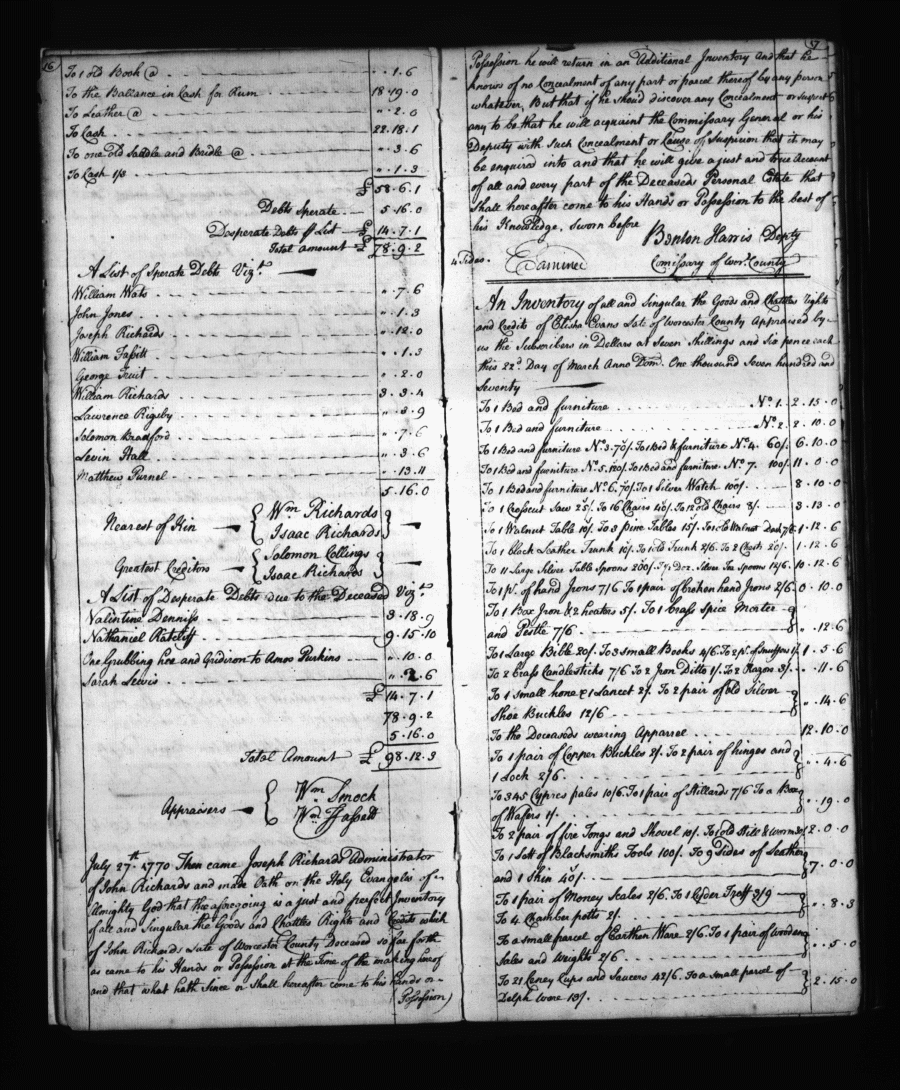 16
To 1 old Book @ . . . " . 1 . 6
To the Ballance in Cash for Rum . . . 18 . 19 . 0
To Leather @ . . . " . 2 . 0
To Cash . . . 22 . 18 . 1
To one old Saddle and Bridle @ . . . " . 3 . 6
To Cash 1/3 . . . " . 1 . 3
£ 58 . 6 . 1
Debts Sperate . . . 5 . 16 . 0
Desperate Debts p List — £ 14 . 7 . 1
Total amount £ 78 . 9 . 2
A List of Sperate Debts Vizt.
William Wats . . . " . 7 . 6
John Jones . . . " . 1 . 3
Joseph Richards . . . " . 12 . 0
William Fassitt . . . " . 1 . 3
George Truit . . . " . 2 . 0
William Richards . . . 3 . 3 . 4
Lawrence Rigsby . . . " . 3 . 9
Solomon Bradford . . . " . 7 . 6
Levin Hall . . . " . 3 . 6
Matthew Purnel . . . " . 13 . 11
5 . 16 . 0
Nearest of Kin — { Wm Richards
Isaac Richards } —
Greatest Creditors — { Solomon Collings
Isaac Richards } —
A List of Desperate Debts due to the Deceased Vizt.
Valintine Denniss . . . 3 . 18 . 9
Nathaniel Ratcliff . . . 9 . 15 . 10
One Grubbing hoe and Gridiron to Amos Purkins — " . 10 . 0
Sarah Lewis . . . " . 2 . 6
£ 14 . 7 . 1
78 . 9 . 2
5 . 16 . 0
Total Amount £ 98 . 12 . 3
Appraisers — { Wm Smock
Wm Fassett
July 27th. 1770 Then came Joseph Richards Administrator
of John Richards and made Oath on the Holy Evangelis of
Almighty God that the aforegoing is a just and perfect Inventory
of all and Singular the Goods and Chattles Rights and Credits which
of John Richards Late of Worcester County Deceased so far forth
as came to his Hands or Possession at the Time of the making hereof
and that what hath Since or Shall hereafter come to his hands or
Possession)
17
Possession he will return in an Additional Inventory And that he
knows of no Concealment of any part or parcel thereof by any person
whatever, But that if he Shou'd discover any Concealment or suspect
any to be that he will acquaint the Commissary General or his
Deputy with Such Concealment or Cause of Suspicion that it may
be enquired into and that he will give a just and true Account
of all and every part of the Deceaseds Personal Estate that
Shall hereafter come to his Hands or Possession to the best of
his Knowledge, Sworn before
Benton Harris Depty
4 Sides. Examined Comissary of Worr. County
An Inventory of all and Singular the Goods and Chattles Rights
and Credits of Elisha Evans Late of Worcester County Appraised by
us the Subscribers in Dollars at Seven Shillings and Six pence each
this 22d. Day of March Anno Dom. One thousand Seven hundred and
Seventy —
To 1 Bed and furniture . . . No. 1. 2 . 15 . 0
To 1 Bed and furniture . . . No. 2. 2 . 10 . 0
To 1 Bed and furniture No. 3. 70/. To 1 Bed & furniture No. 4. 60/. 6 . 10 . 0
To 1 Bed and furniture No. 5. 120/. To 1 Bed and furniture No. 7. 100/. 11 . 0 . 0
To 1 Bed and furniture No. 6. 70/. To 1 Silver Watch 100/. . . . 8 . 10 . 0
To 1 Crosscut Saw 25/. To 16 Chairs 40/. To 12 old Chairs 8/. . . 3 . 13 . 0
To 1 Walnut Table 10/. To 3 pine Tables 15/. To 1 Walnut Desk 7/6 1 . 12 . 6
To 1 black Leather Trunk 10/. To 1 old Trunk 2/6. To 2 Chests 20/. 1 . 12 . 6
To 11 Large Silver Table Spoons 200/. To ½ Doz. Silver Tea Spoons 12/6. 10 . 12 . 6
To 1 pr. of hand Irons 7/6 To 1 pair of broken hand Irons 2/6 0 . 10 . 0
To 1 Box Iron & 2 heaters 5/. To 1 brass Spice Morter
and Pestle 7/6 . . . " . 12 . 6
To 1 Large Bible 20/. To 3 small Books 4/6 To 2 pr. of Snuffers 1/. 1 . 5 . 6
To 2 brass Candlesticks 7/6 To 2 Iron Ditto 1/. To 2 Razors 3/. " . 11 . 6
To 1 small hone & 1 Lancet 2/. To 2 pair of old Silver
Shoe Buckles 12/6 . . . " . 14 . 6
To the Deceaseds wearing Apparel . . . 12 . 10 . 0
To 1 pair of Copper Buckles 2/. To 2 pair of hinges and
1 Lock 2/6 . . . " . 4 . 6
To 345 Cypres pales 10/6 To 1 pair of Stillards 7/6 To a Box
of Wafers 1/. . . . " . 19 . 0
To 2 pair of fire Tongs and Shovel 10/. To 1 old Still & worm 30/ 2 . 0 . 0
To 1 Sett of Blacksmiths Tools 100/. To 9 Sides of Leather
and 1 Skin 40/. . . . 7 . 0 . 0
To 1 pair of Money Scales 2/6. To 1 Cyder Troff 3/9 —
To 4 Chamber potts 2/. . . . " . 8 . 3
To a small parcel of Earthen Ware 2/6. To 1 pair of wooden
Scales and Weights 2/6 . . . " . 5 . 0
To 21 Cheney Cups and Saucers 42/6. To a small parcel of
Delph Ware 13/. . . . 2 . 15 . 0